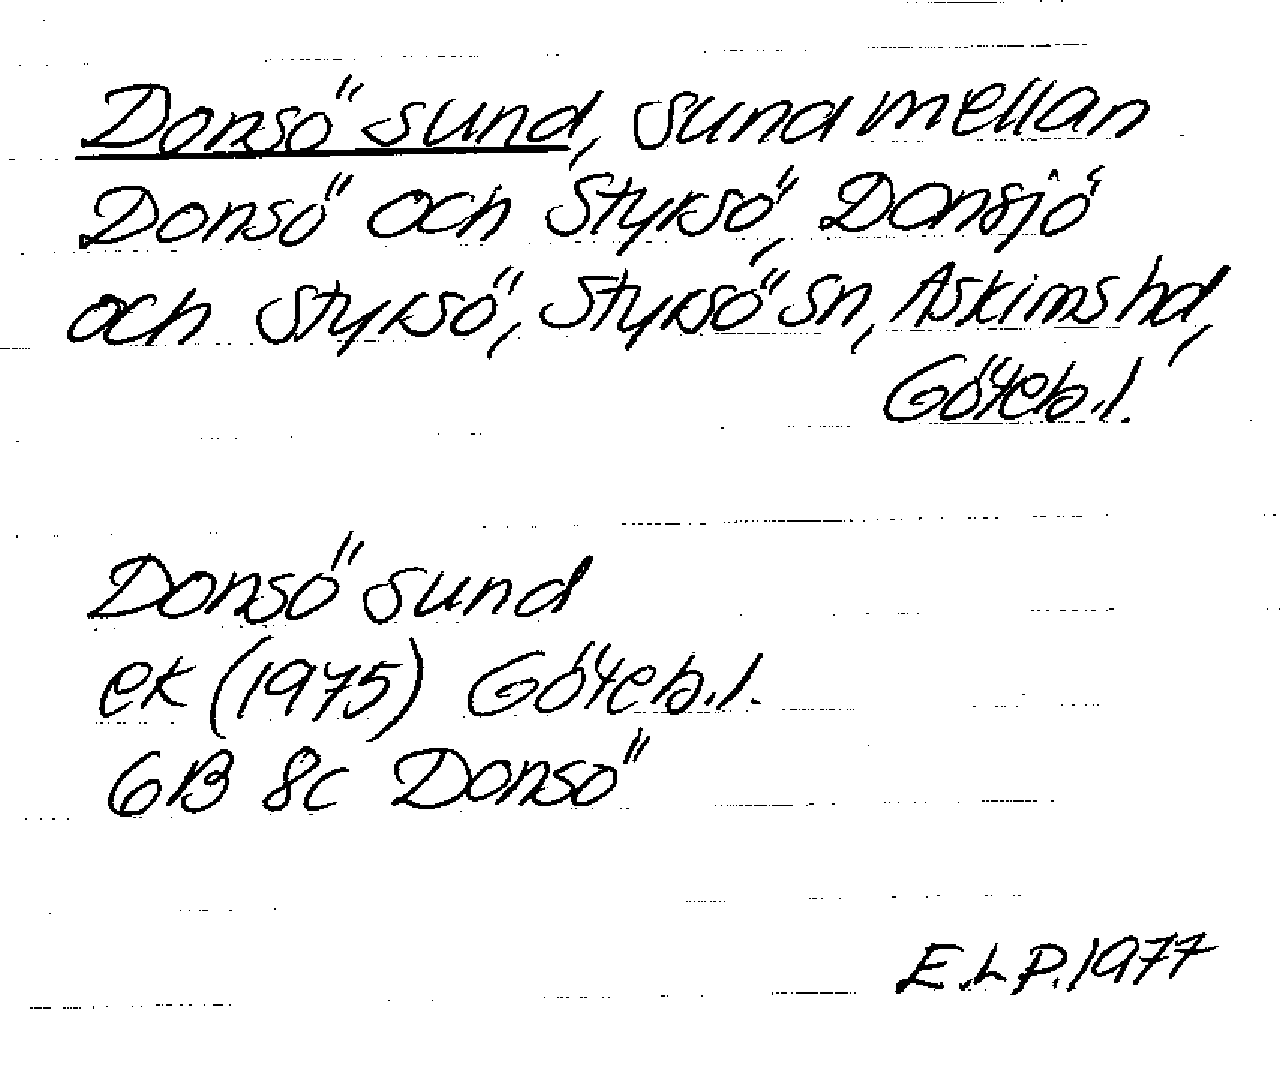 Donsö sund, sund mellan
Donsö och Styrsö, Donsjö
och Styrsö, Styrsö sn, Askims hd,
Göteb.l.
Donsö sund
ek (1975) Göteb.l.
6B 8c Donsö
E.L.P. 1977